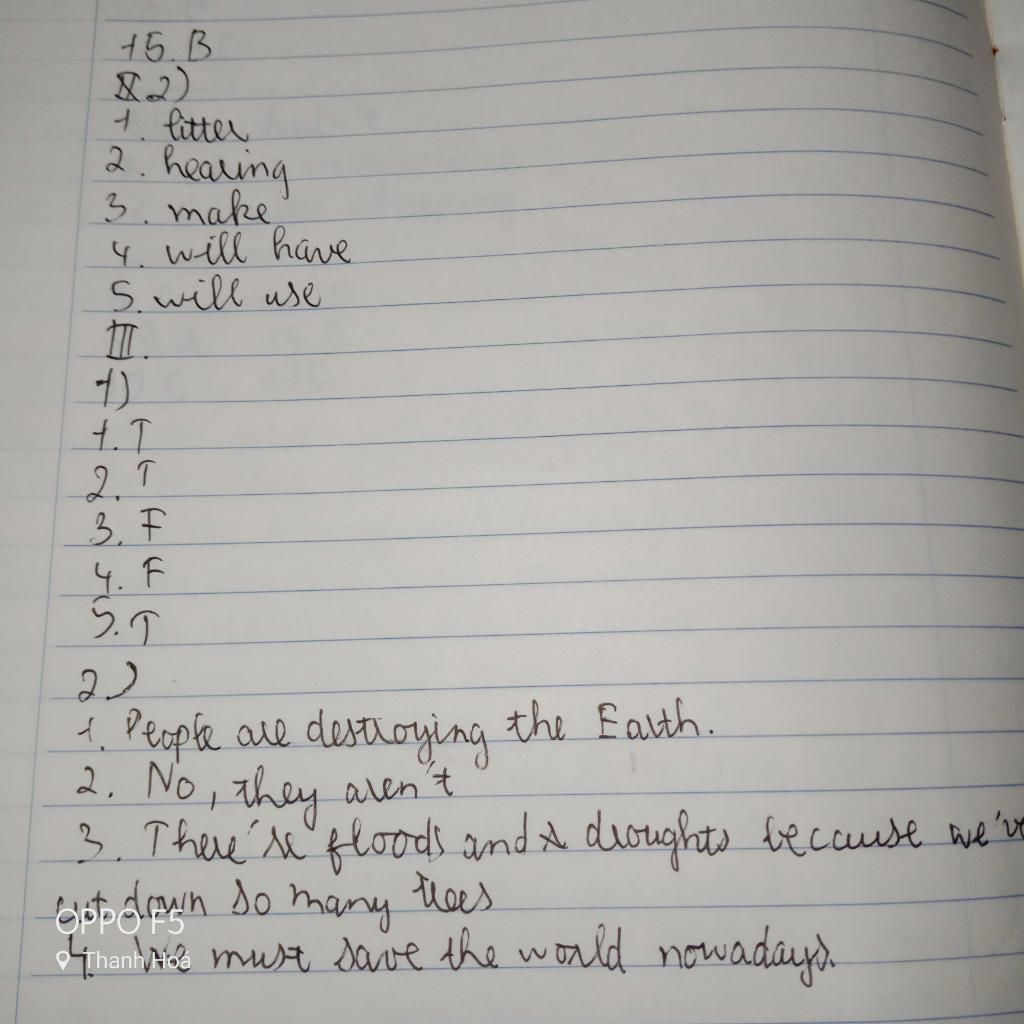 15. B
2)
1. litter
2. hearing
3. make
4. will have
5. will use
III.
1)
1. T
2. T
3. F
4. F
5. T
2)
1. People are destroying the Earth.
2. No, they aren't
3. There're floods and droughts because we've
cut down so many trees
4. We must save the world nowadays.
OPPO F5
Thanh Hoá